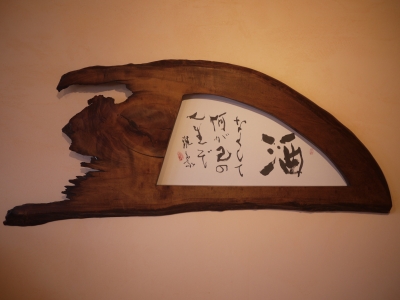 酒
なくして
何が己の
人生ぞ